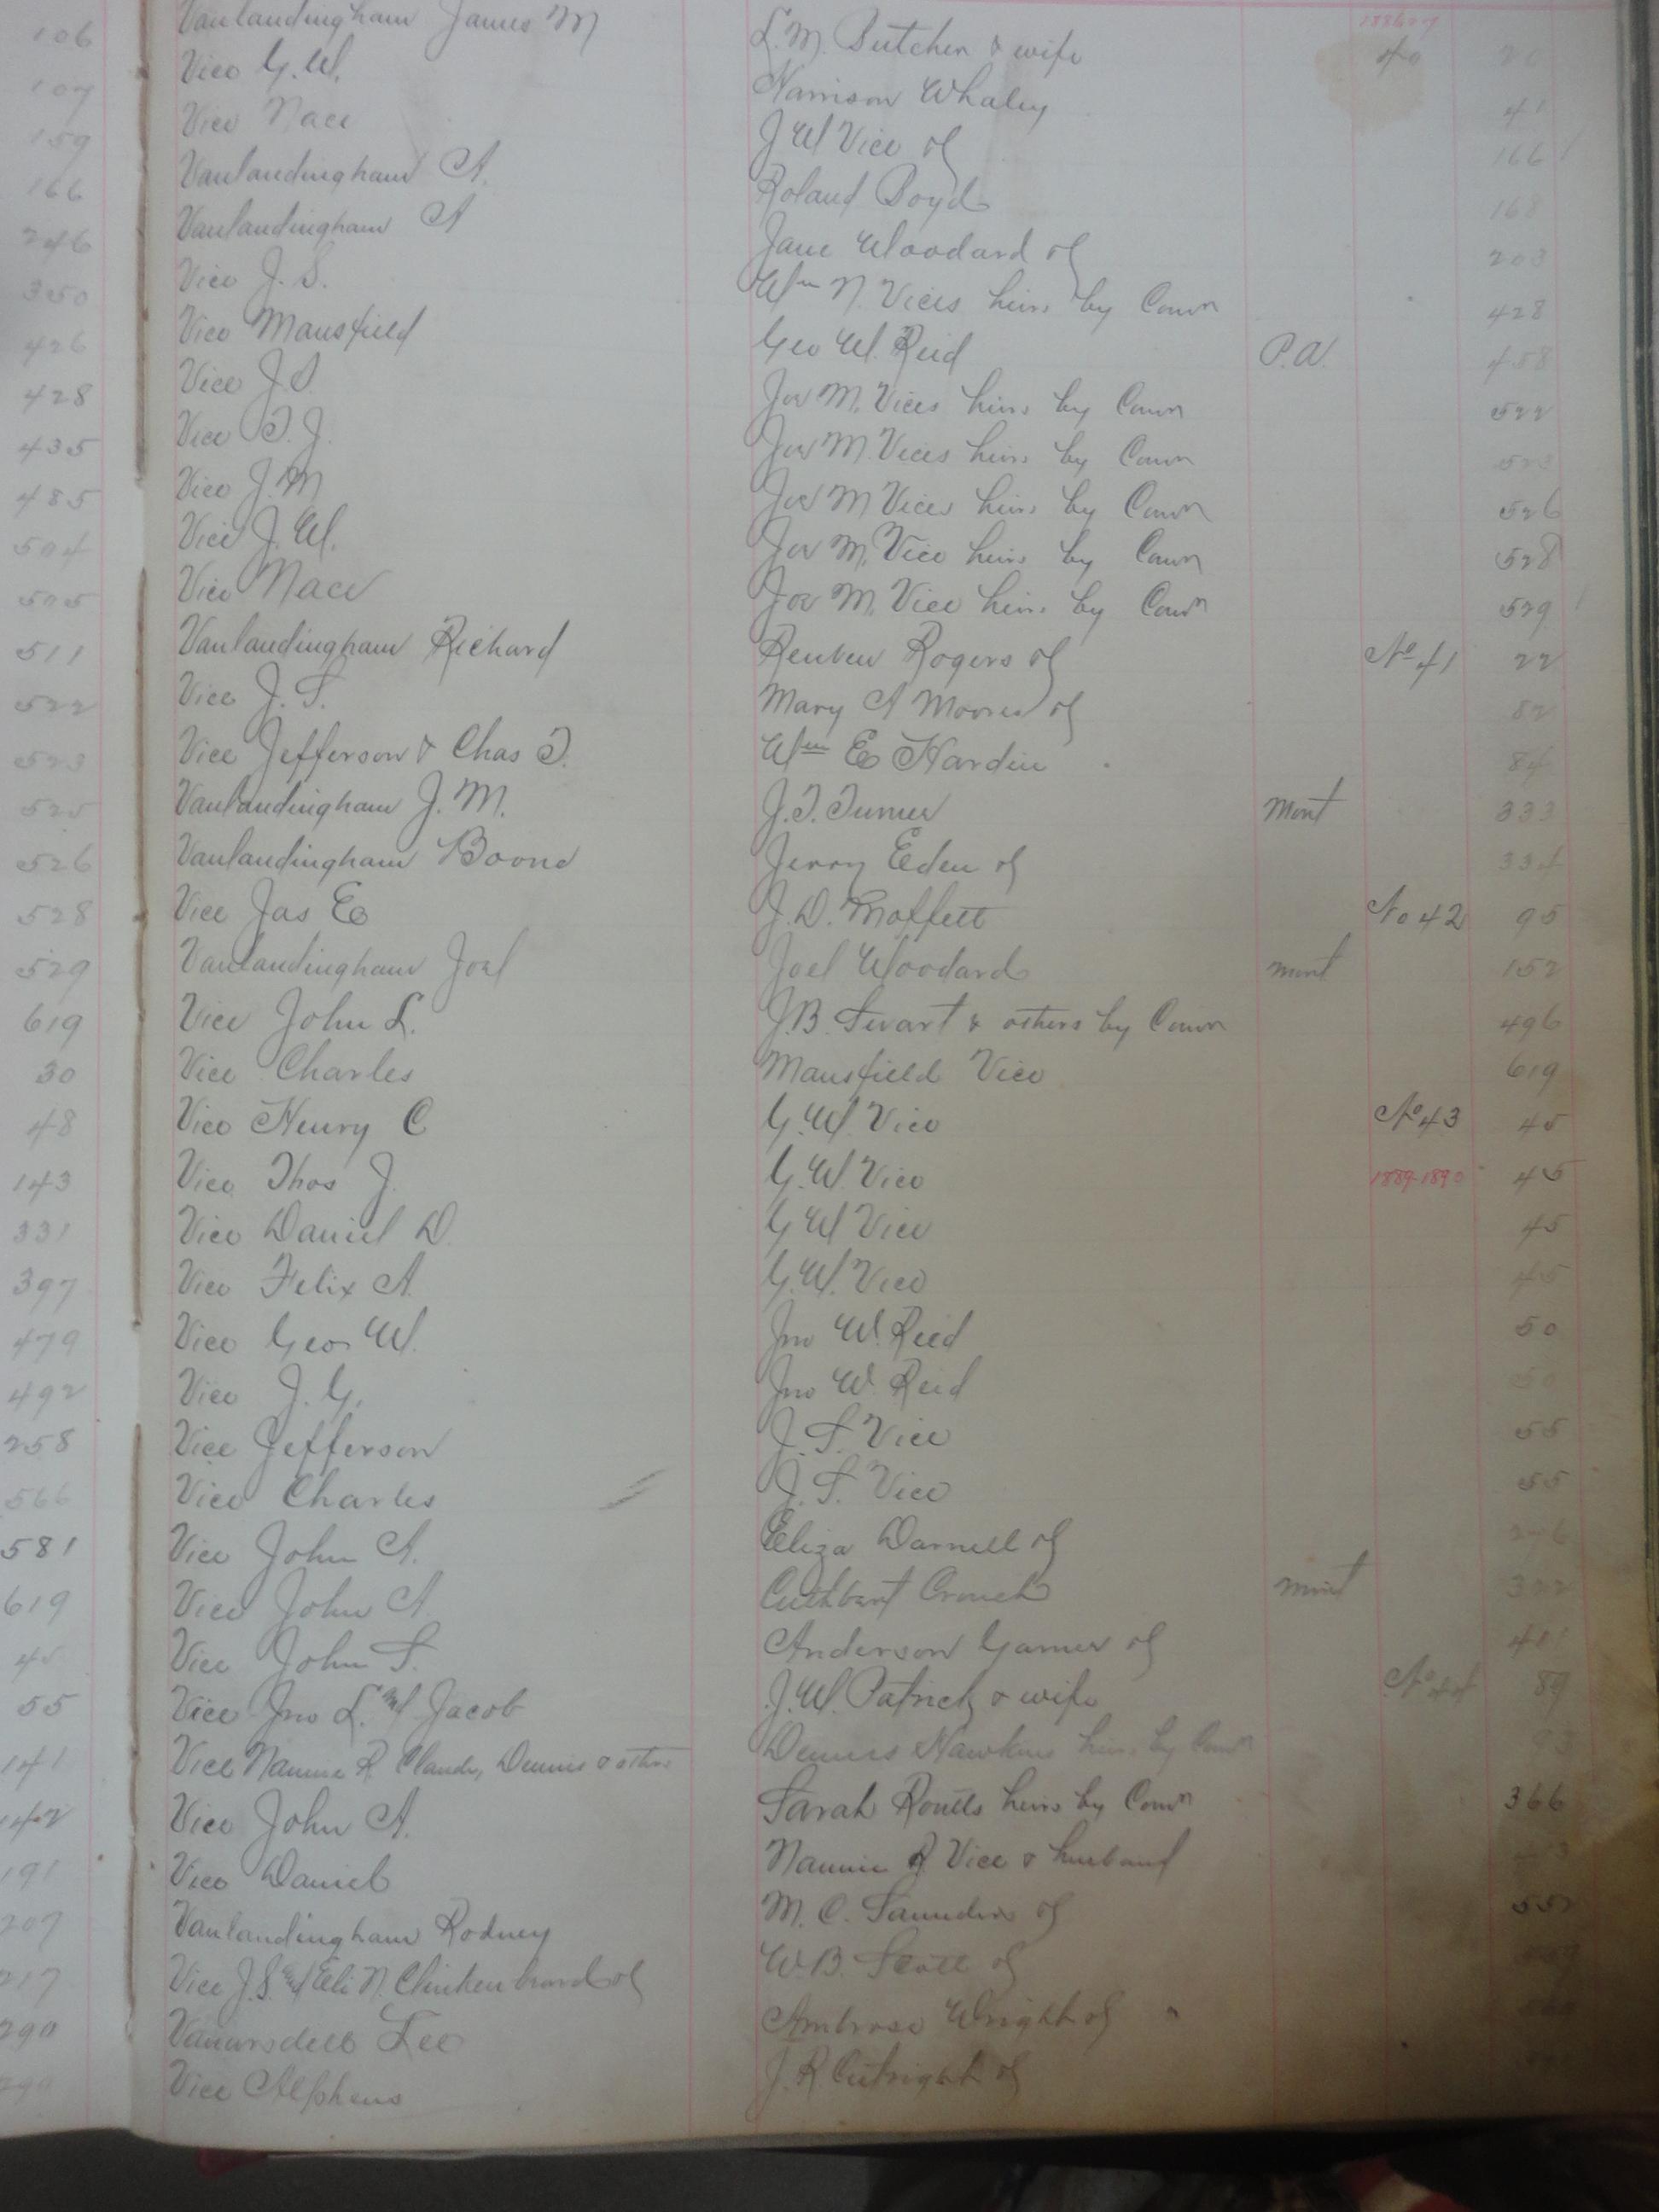 1886-7
106 Vanlandingham James M L. M. Butcher & wife 40 20
107 Vice G. W. Harrison Whaley 41
159 Vice Nace J W Vice of 166
166 Vanlandingham A. Roland Boyd 168
246 Vanlandingham A Jane Woodard of 203
350 Vice J. S. Wm N. Vices heirs by Comr 428
426 Vice Mansfield Geo W. Reid P.A. 458
428 Vice J. S. Jas M. Vices heirs by Comr 522
435 Vice T. J. Jas M. Vices heirs by Comr 523
485 Vice J. M Jas M Vices heirs by Comr 526
504 Vice J. W. Jas M. Vice heirs by Comr 528
505 Vice Nace Jas M. Vice heirs by Comr 529
511 Vanlandingham Richard Reuben Rogers of No 41 22
522 Vice J. S. Mary A Moores of 82
523 Vice Jefferson & Chas T. Wm E Hardin 84
525 Vanlandingham J. M. J. T. Turner Mort 333
526 Vanlandingham Boone Jerry Eden of 334
528 Vice Jas E J. D. Moffett No 42 95
529 Vanlandingham Joel Joel Woodard Mort 152
619 Vice John L. J. B. Swart & others by Comr 496
30 Vice Charles Mansfield Vice 619
48 Vice Henry C G. W. Vice No 43 45
143 Vice Thos J. G. W. Vice 1889-1890 45
331 Vice Daniel D. G W Vice 45
397 Vice Felix A. G. W. Vice 45
479 Vice Geo W. Jno W. Reed 50
492 Vice J. G. Jno W. Reid 50
258 Vice Jefferson J. S. Vice 55
566 Vice Charles J. S. Vice 55
581 Vice John A. Eliza Darnell of
619 Vice John A Cuthbert Crouch Mort 322
45 Vice John S. Anderson Garner of 411
55 Vice Jno L. Wf Jacob J. W. Patrick & wife No 44 89
141 Vice Nannie R. Claude, Dennis & others Dennis Hawkins heirs by Comr 93
142 Vice John A. Sarah Routts heirs by Comr 366
191 Vice Daniel Nannie R Vice & husband
207 Vanlandingham Rodney M. C. Saunders of 552
217 Vice J. S. & Eli N. Clinkenbeard of W. B. Scott of
290 Vanarsdell Lee Ambrose Wright of
Vice Alpheus J. R Cutright of